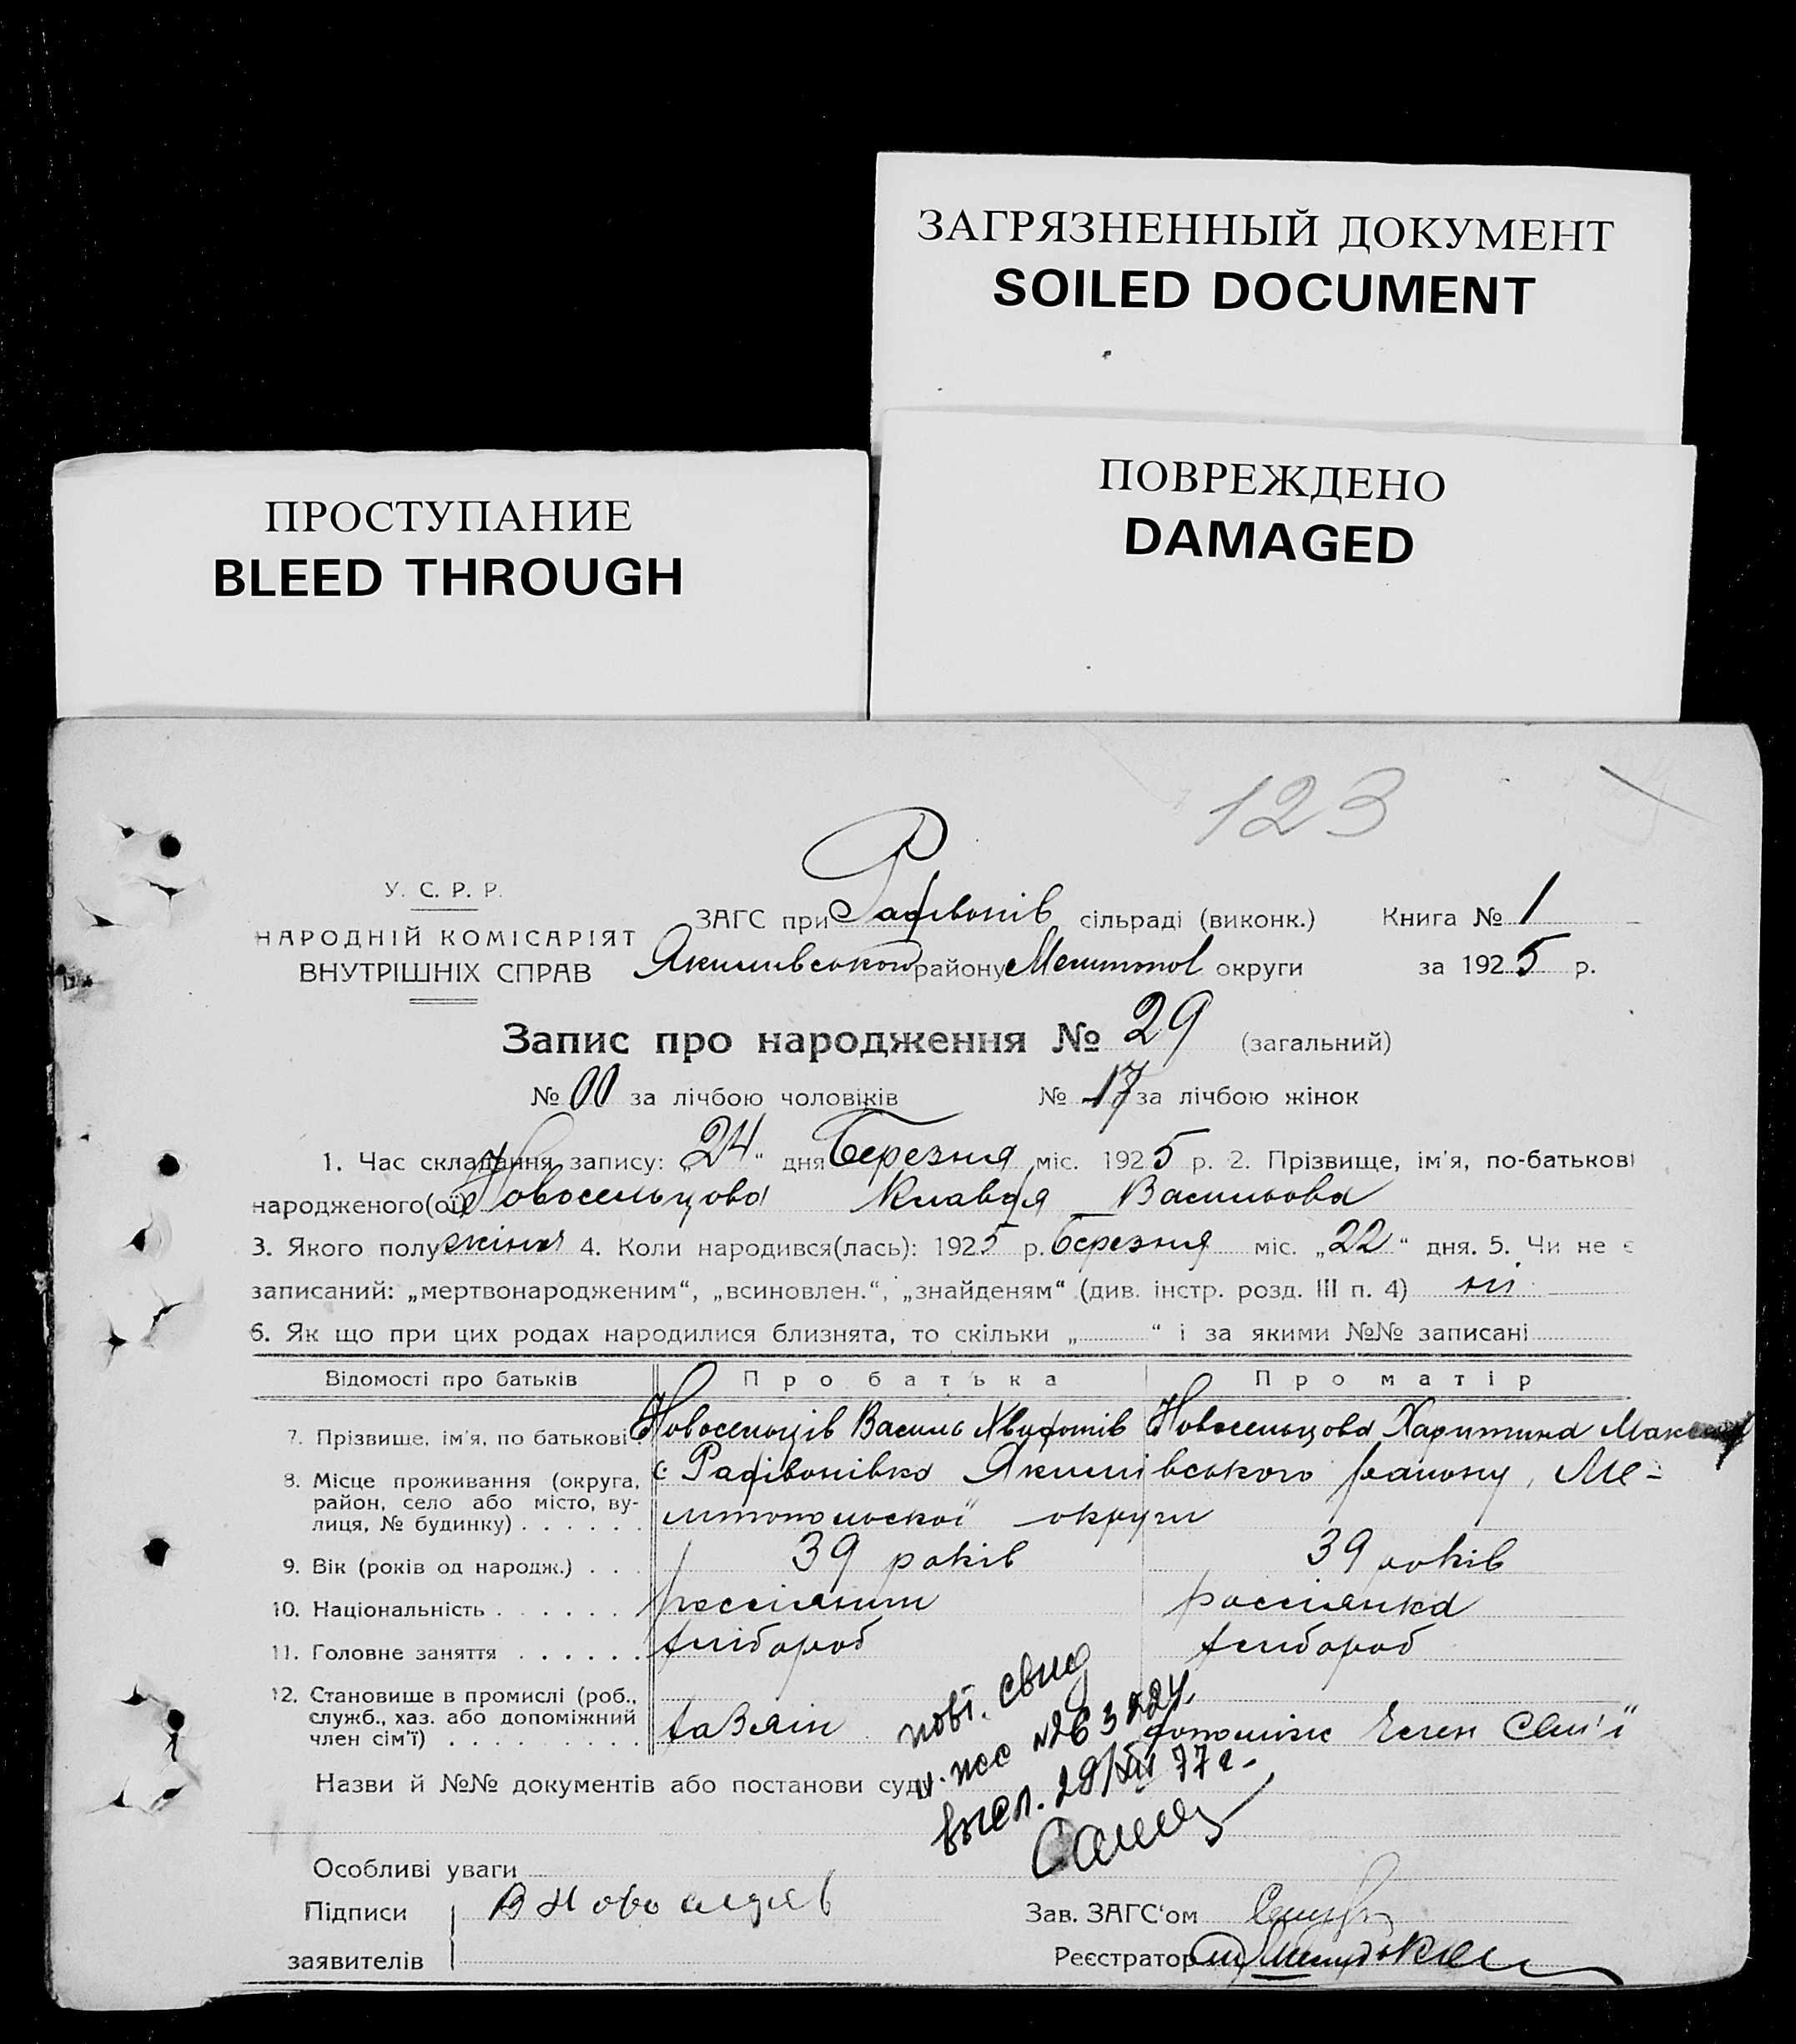 ЗАГРЯЗНЕННЫЙ ДОКУМЕНТ
SOILED DOCUMENT
ПОВРЕЖДЕНО
DAMAGED
ПРОСТУПАНИЕ
BLEED THROUGH
123
У. С. Р. Р.
НАРОДНІЙ КОМІСАРІЯТ
ВНУТРІШНІХ СПРАВ
ЗАГС при Радівонів сільраді (виконк.) Книга № 1
Якимівського району Мелитопол округи за 1925 р.
Запис про народження № 29 (загальний)
№ 00 за лічбою чоловіків № 17 за лічбою жінок
1. Час складання запису: „24“ дня Березня міс. 1925 р. 2. Прізвище, ім'я, по-батькові
народженого(ої) Новосельцова Клавдя Васильова
3. Якого полу жіноч 4. Коли народився(лась): 1925 р. Березня міс. „22“ дня. 5. Чи не є
записаний: „мертвонародженим“, „всиновлен.“, „знайденям“ (див. інстр. розд. III п. 4) ні
6. Як що при цих родах народилися близнята, то скільки „ “ і за якими №№ записані
Відомості про батьків Про батька Про матір
7. Прізвище, ім'я, по батькові Новосельців Василь Новосельцова Харитина
8. Місце проживання (округа, район, село або місто, вулиця, № будинку) с. Радівонівка Якимівського району, Ме-
литопольскої округи
9. Вік (років од народж.) 39 років 39 років
10. Національність россіянин россіянка
11. Головне заняття хлібороб хлібороб
12. Становище в промислі (роб., служб., хаз. або допоміжний член сім'ї) хазяін допоміж член сем'ї
повт. свид
Назви й №№ документів або постанови суду
Особливі уваги
Підписи
заявителів
Зав. ЗАГС'ом
Реєстратор